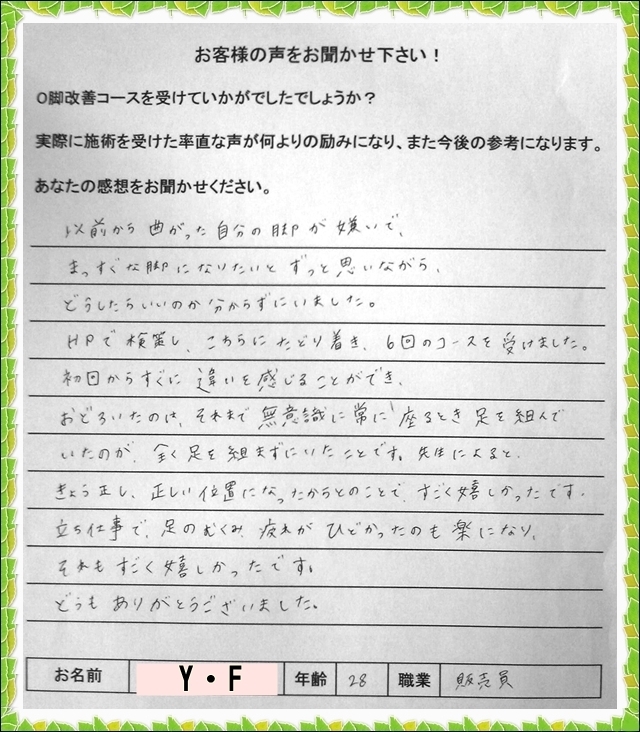 お客様の声をお聞かせ下さい！
O脚改善コースを受けていかがでしたでしょうか？
実際に施術を受けた率直な声が何よりの励みになり、また今後の参考になります。
あなたの感想をお聞かせください。
以前から曲がった自分の脚が嫌いで、
まっすぐな脚になりたいとずっと思いながら、
どうしたらいいのか分からずにいました。
HPで検策し、こちらにたどり着き、6回のコースを受けました。
初回からすぐに違いを感じることができ、
おどろいたのは、それまで無意識に常に座るとき足を組んで
いたのが、全く足を組まずにいたことです。先生によると、
きょう正し、正しい位置になったからとのことで、すごく嬉しかったです。
立ち仕事で、足のむくみ、疲れがひどかったのも楽になり、
それもすごく嬉しかったです。
どうもありがとうございました。
お名前 Y・F 年齢 28 職業 販売員